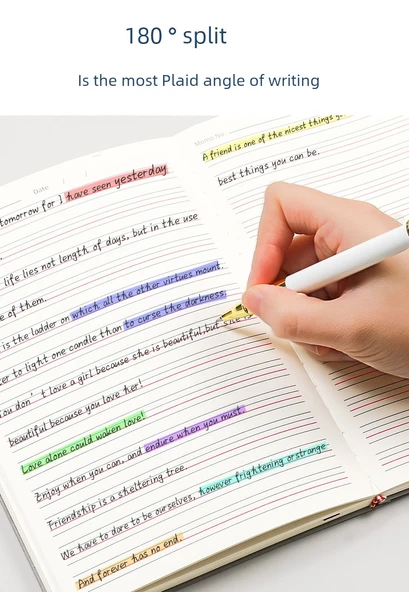 180 ° split
Is the most Plaid angle of writing
Date / /
tomorrow for I have seen yesterday
life lies not length of days, but in the use
e of them.
is the ladder on which all the other virtues mount.
er to light one candle than to curse the darkness.
ou don't love a girl because she is beautiful, but she is
beautiful because you love her!
Love alone could waken love!
Enjoy when you can, and endure when you must.
Friendship is a sheltering tree.
We have to dare to be ourselves, however frightening orstrange
And forever has no end.
Memo No.
A friend is one of the nicest things y
best things you can be.